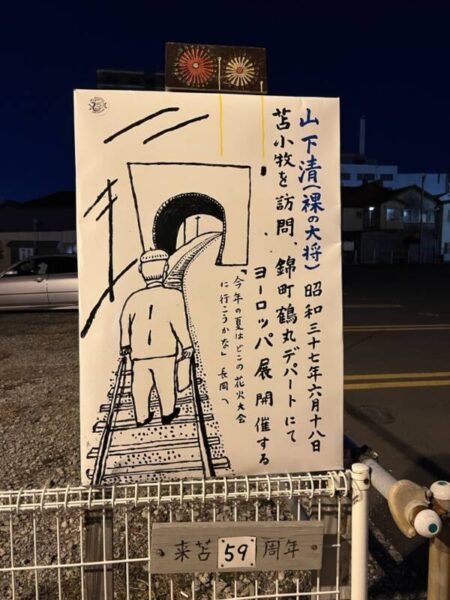 山下清(裸の大将) 昭和三十七年六月十八日
苫小牧を訪問、錦町鶴丸デパートにて
ヨーロッパ展開催する
「今年の夏はどこの花火大会
に行こうかな」長岡へ
来苫59周年